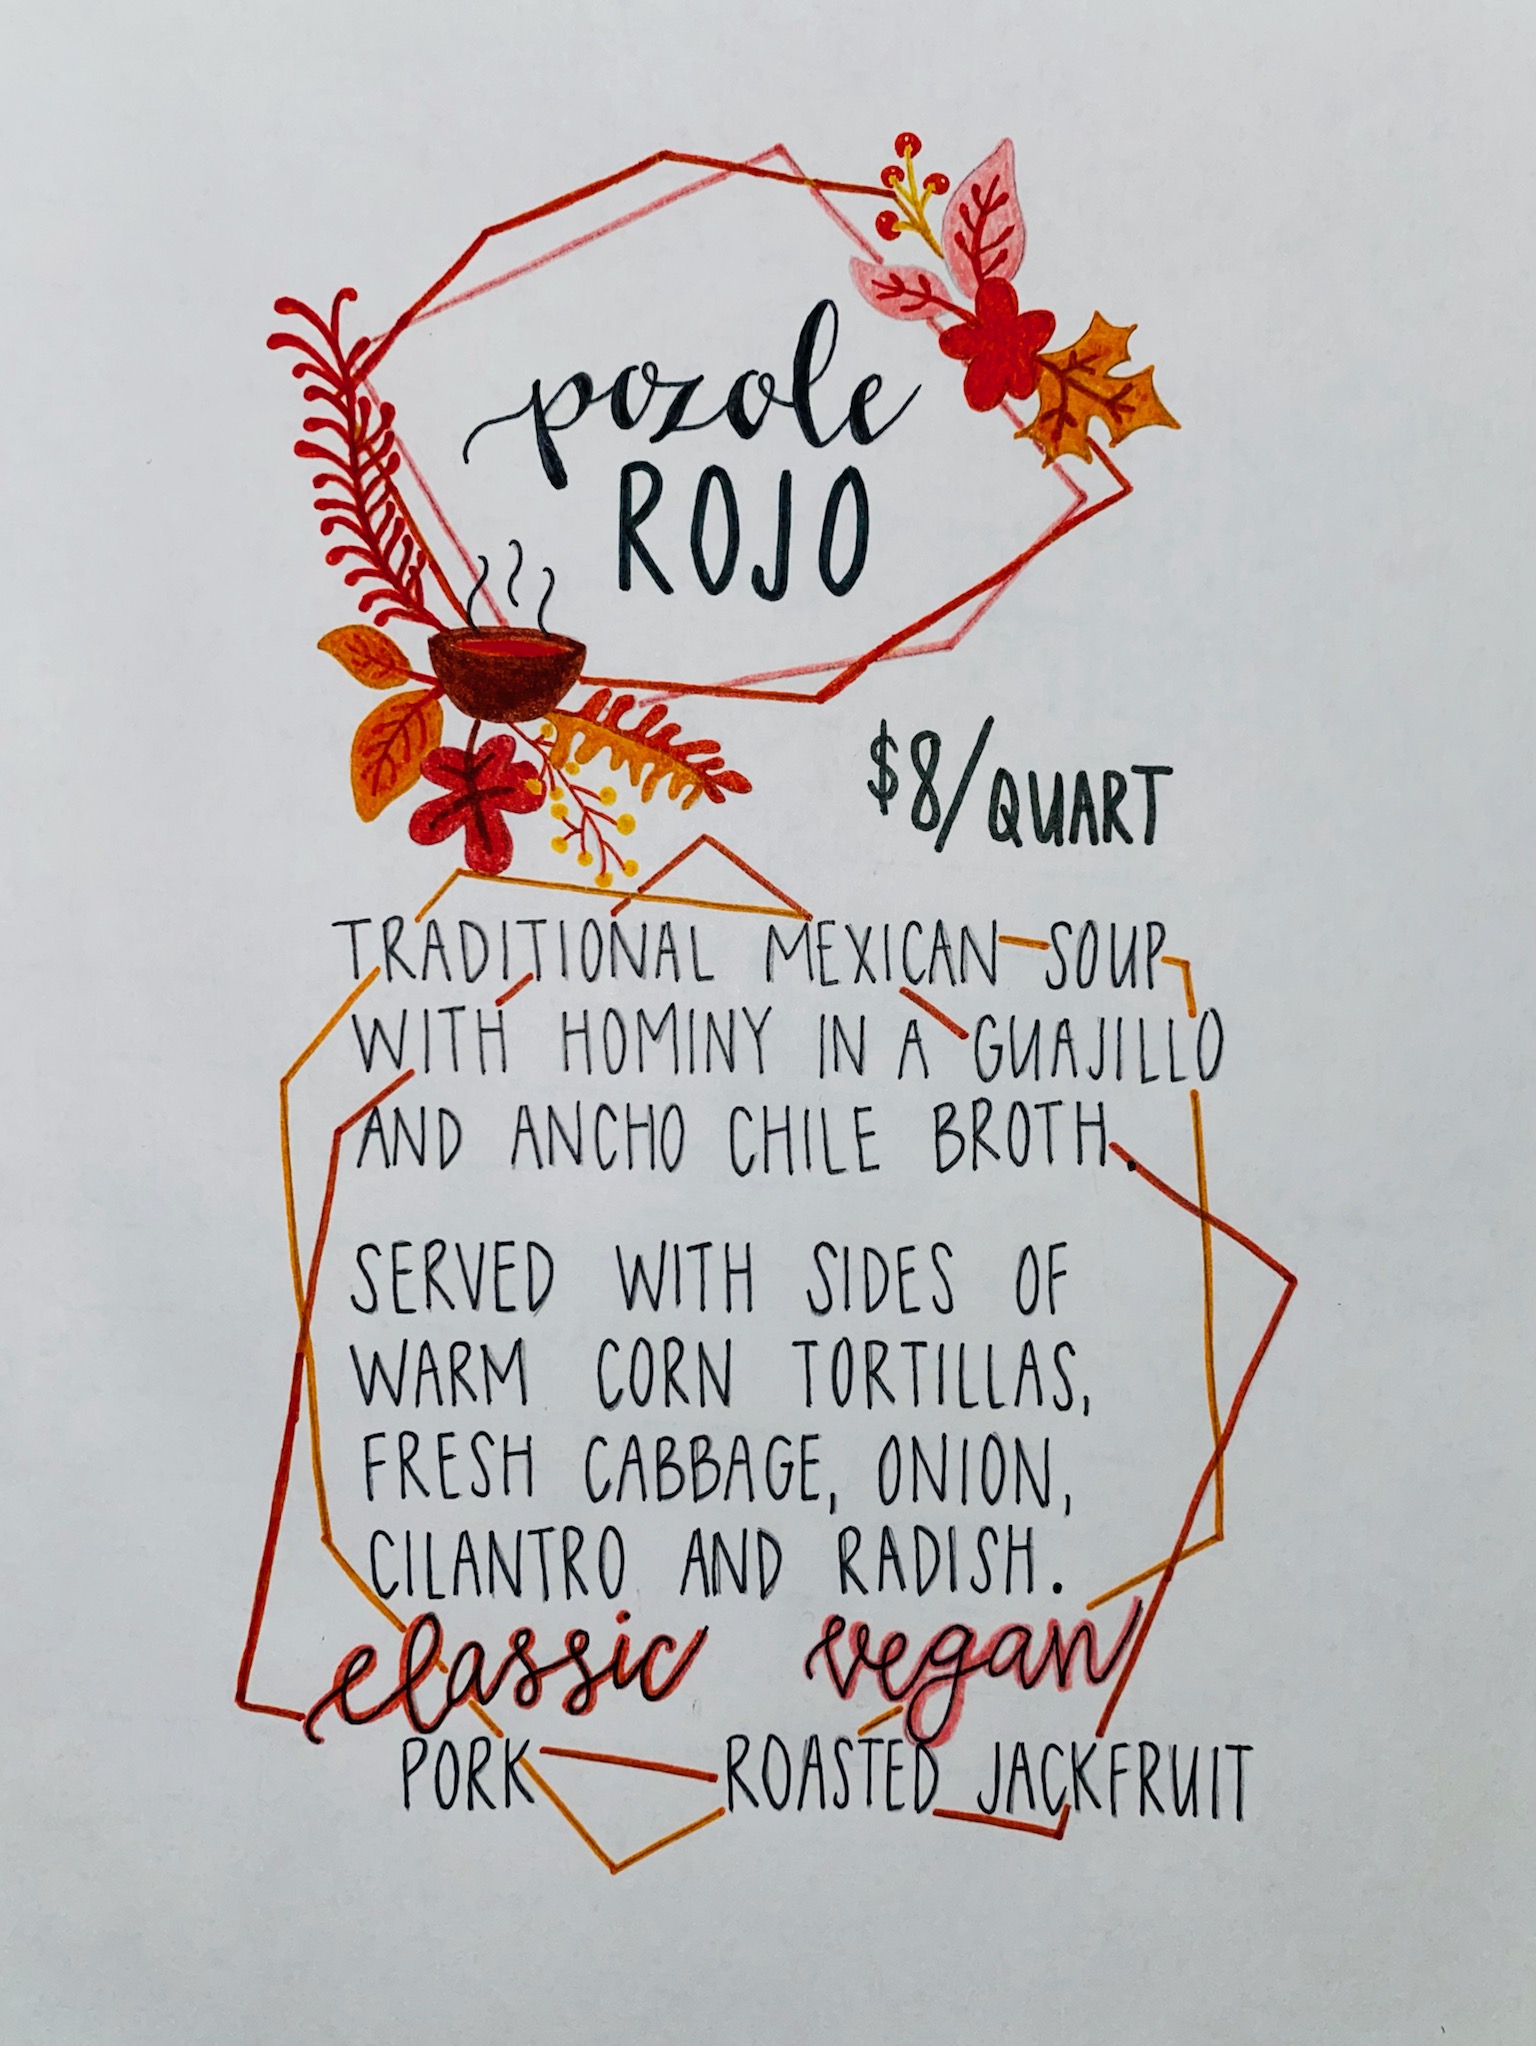 pozole
ROJO
$8/QUART
TRADITIONAL MEXICAN SOUP
WITH HOMINY IN A GUAJILLO
AND ANCHO CHILE BROTH.
SERVED WITH SIDES OF
WARM CORN TORTILLAS,
FRESH CABBAGE, ONION,
CILANTRO AND RADISH.
classic vegan
PORK ROASTED JACKFRUIT